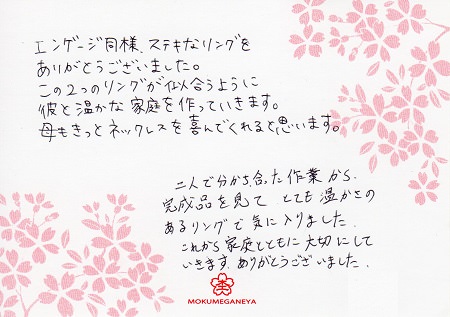 エンゲージ同様、ステキなリングを
ありがとうございました。
この2つのリングが似合うように
彼と温かな家庭を作っていきます。
母もきっとネックレスを喜んでくれると思います。
二人で分かち合った作業から、
完成品を見て とても温かさの
あるリングで気に入りました。
これから家庭とともに大切にして
いきます。ありがとうございました。
MOKUMEGANEYA